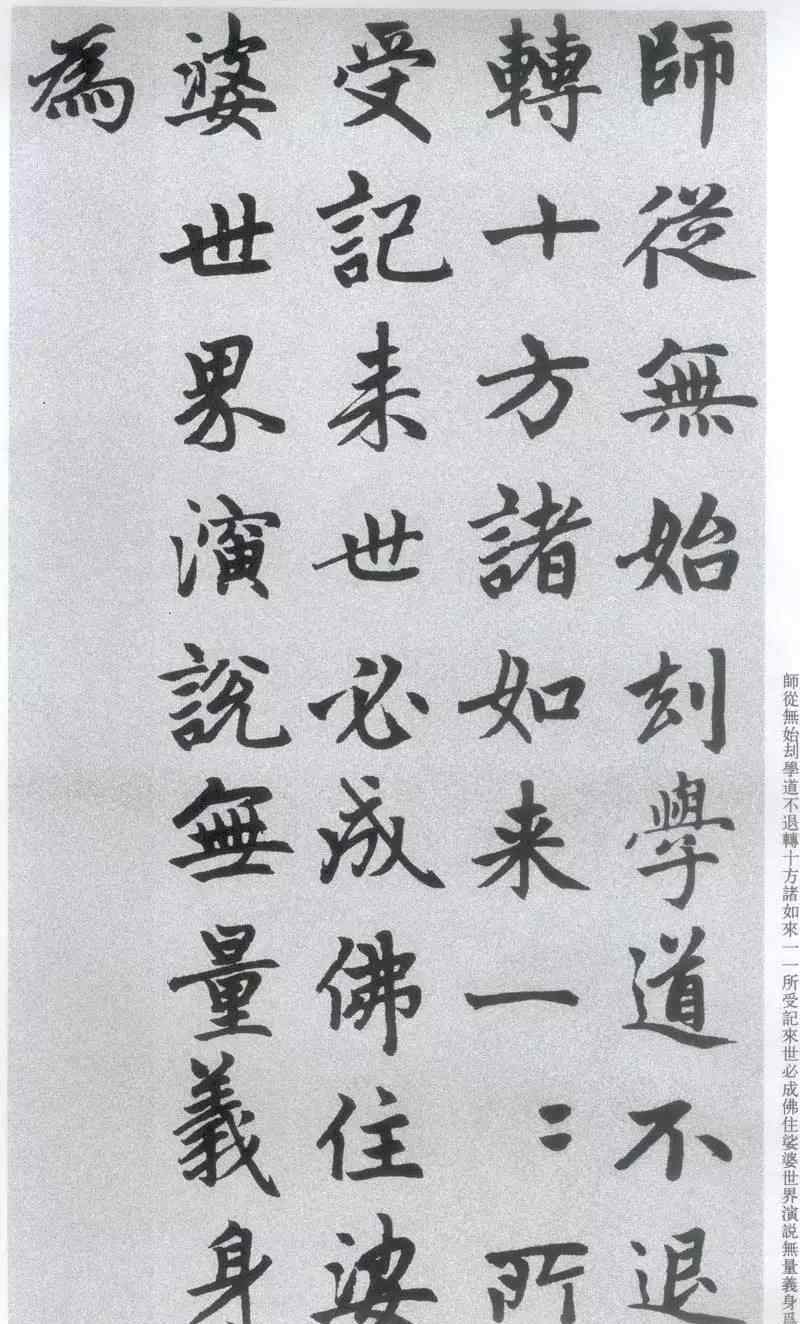 師從無始刦學道不退
轉十方諸如来一〻所
受記来世必成佛住娑
婆世界演說無量義身
為
師從無始刦學道不退轉十方諸如來一一所受記來世必成佛住娑婆世界演説無量義身爲